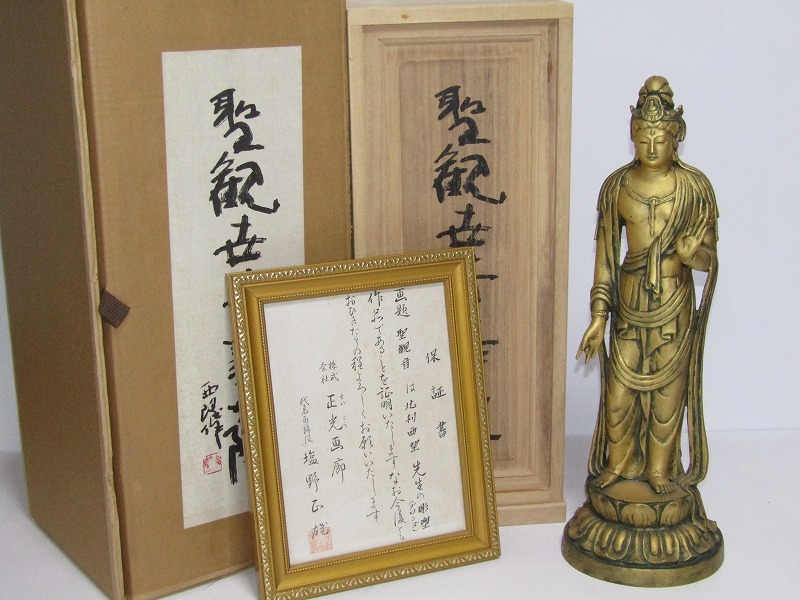 聖観世
西望作
聖観世
保証書
画題 聖観音 は北村西望先生の彫塑
(ブロンズ)
作品であることを証明いたしますなお今後とも
おひきたての程よろしくお願いいたします
株式会社 正光画廊
代表取締役 塩野正雄